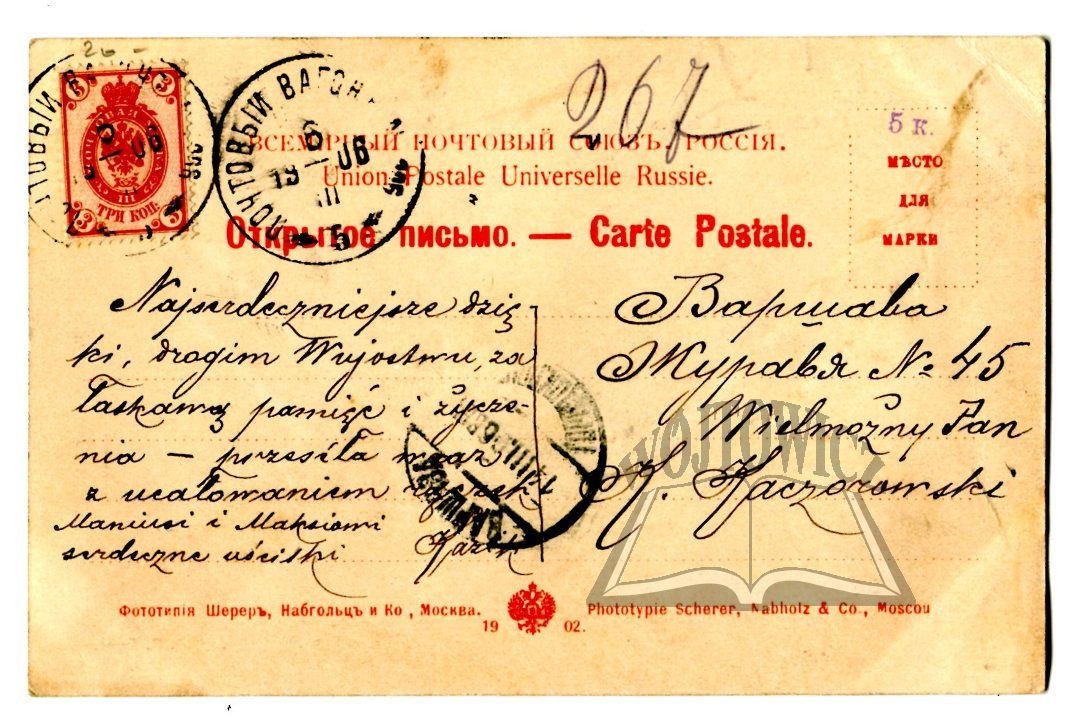 26 -
267
ПОЧТОВЫЙ ВАГОН
6
III
19 06
5
3 3
ТРИ КОП.
3 3
ВСЕМІРНЫЙ ПОЧТОВЫЙ СОЮЗЪ. РОССІЯ.
Union Postale Universelle Russie.
Открытое письмо. — Carte Postale.
5 к.
МѢСТО
ДЛЯ
МАРКИ
Najserdeczniejsze dzię-
ki, drogim Wujostwu, za
łaskawą pamięć i życze-
nia — przesyła wraz
z ucałowaniem rączek
Maniusi i Maksiowi
serdeczne uściski
Варшава
Журавя No 45
Wielmożny Pan
K. Kaczorowski
ВАРШАВА
WÓJTOWICZ
Фототипія Шереръ, Набгольцъ и Ко, Москва.
1902.
Phototypie Scherer, Nabholz & Co., Moscou